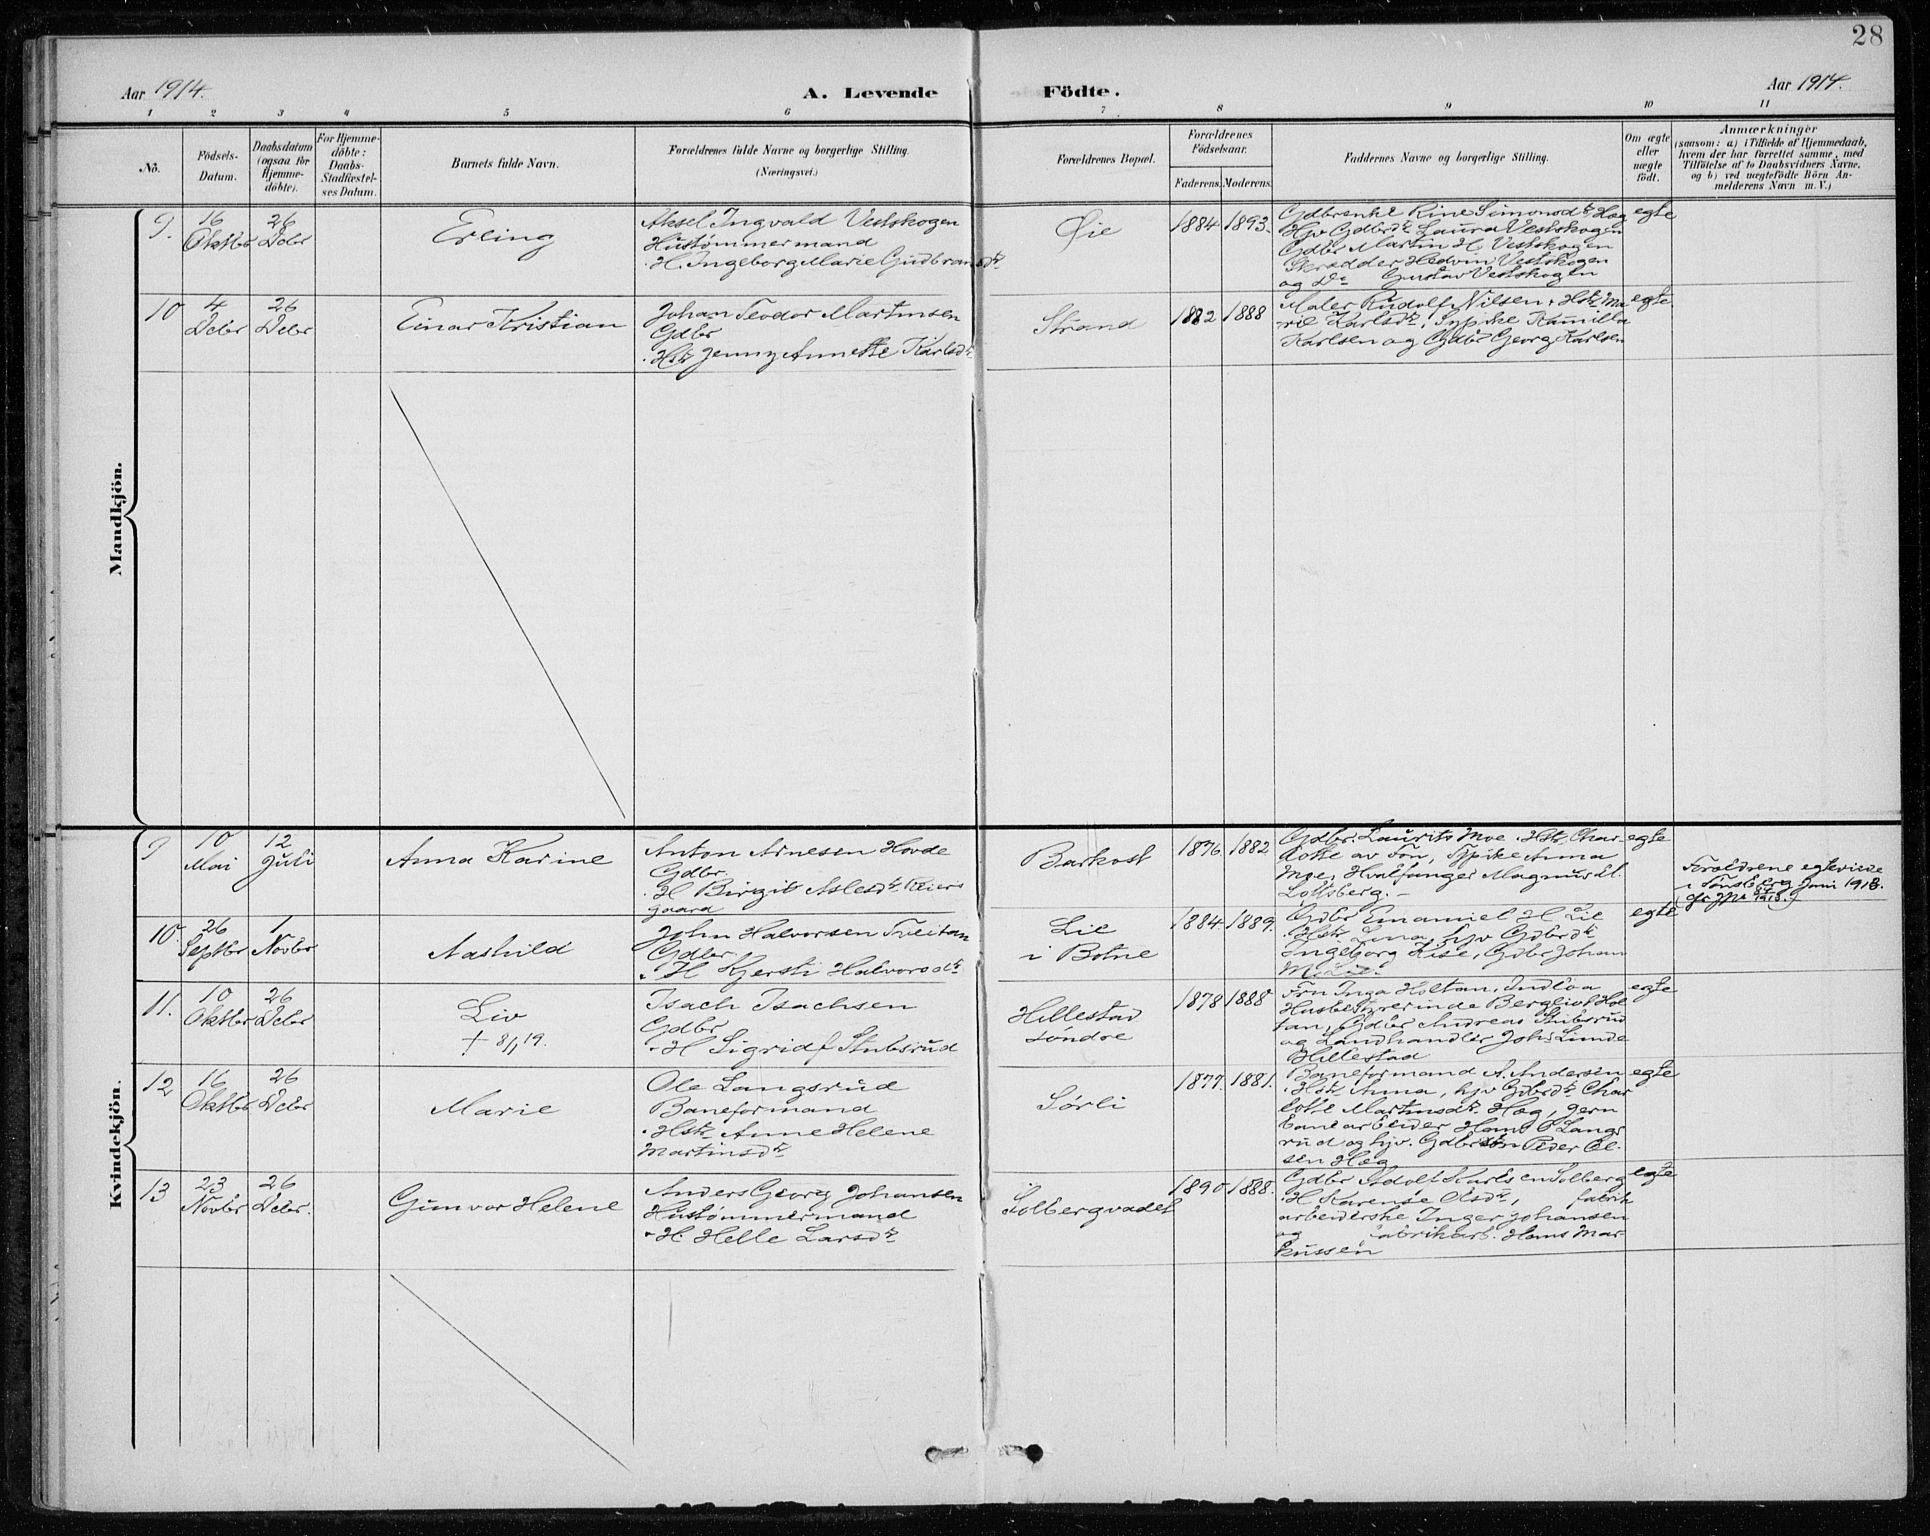 28
Aar 1914.
A. Levende
Födte.
Aar 1914.
1 2 3 4 5 6 7 8 9 10 11
No.
Födsels-
Datum.
Daabsdatum
(ogsaa for
Hjemme-
döbte).
For Hjemme-
döbte:
Daabs-
Stadfæstel-
ses Datum.
Barnets fulde Navn.
Forældrenes fulde Navne og borgerlige Stilling.
(Næringsvei.)
Forældrenes Bopæl.
Forældrenes
Födselsaar.
Faderens. Moderens.
Faddernes Navne og borgerlige Stilling.
Om ægte
eller
uægte
födt.
Anmærkninger
(saasom: a) i Tilfælde af Hjemmedaab,
hvem der har forrettet samme, med
Tilföielse af to Daabsvidners Navne,
og b) ved uægtefödte Börn An-
melderens Navn m. V.)
Mandkjön.
9.
16
Oktbr
26
Debr
Erling
Aksel Ingvald Vestskogen
Hustømmermand
H. Ingeborg Marie Gudbrandsdtr
Øie
1884 1893.
Gdbrenke Rine Simonsdtr Hæg
Hjv Gdbrdtr Laura Vestskogen
Gdbr Martin H. Vestskogen
Skrædder Hedvin Vestskogen
og Do Gustav Vestskogen
egte
10
4
Debr
26
Debr
Einar Kristian
Johan Teodor Martinsen
Gdbr
Hstr Jenny Annette Karlsdtr
Strand
1882 1888
Maler Rudolf Nilsen, Hstr Ma-
rie Karlsdtr, Sypike Kamilla
Karlsen og Gdbr Georg Karlsen
egte
Kvindekjön.
9
10
Mai
12
Juli
Anna Karine
Anton Arnesen Hovde
Gdbr.
H Birgit Aslesdtr
gaard
Barkost
1876 1882
Gdbr. Laurits Moe. Hstr Char-
lotte av Fon, Sypike Anna
Moe, Hvalfanger Magnus
Loftsberg. -
egte
Foraldrene egteviede
i Tønsberg Juni 1913.
10.
26
Septbr
1
Novbr
Aashild
John Halvorsen Tveitan
Gdbr
H Kjersti Halvorsdtr
Lie
i Botne
1884. 1889.
Gdbr Emanuel H Lie
Hstr Lina, hjv Gdbrdtr
Ingeborg Kise, Gdbr Johan
M. Lie.
egte
11.
10
Oktbr
26
Debr
Liv
† 8/1 19.
Isach Isachsen
Gdbr
H Sigrid f Stubsrud
Hillestad
søndre
1878 1888
Fru Inga Holtan,
Husbestyrerinde Bergliot Hol-
tan, Gdbr Andreas Stubsrud
og Landhandler Johs Linde
Hillestad
egte
12
16
Oktbr
26
Debr
Marie
Ole Langsrud
Baneformand
Hstr Anne Helene
Martinsdtr
Sørli
1877. 1881.
Baneformand A. Andersen
Hstr Anna, hjv Gdbrdtr Char
lotte Martinsdtr Hæg, jern
banearbeider Hans O Langs
rud og hjv. Gdbrsøn Peder Ol-
sen Hæg
egte
13
23
Novbr
26
Debr.
Gunvor Helene
Anders Georg Johansen
Hustømmermand
H. Helle Larsdtr
Solbergvadet
1890 1888.
Gdbr Adolf Karlsen Solberg
H Karense Olsdtr, fabrik
arbeiderske Inger Johansen
og fabrikarb. Hans Mar-
kussen
egte